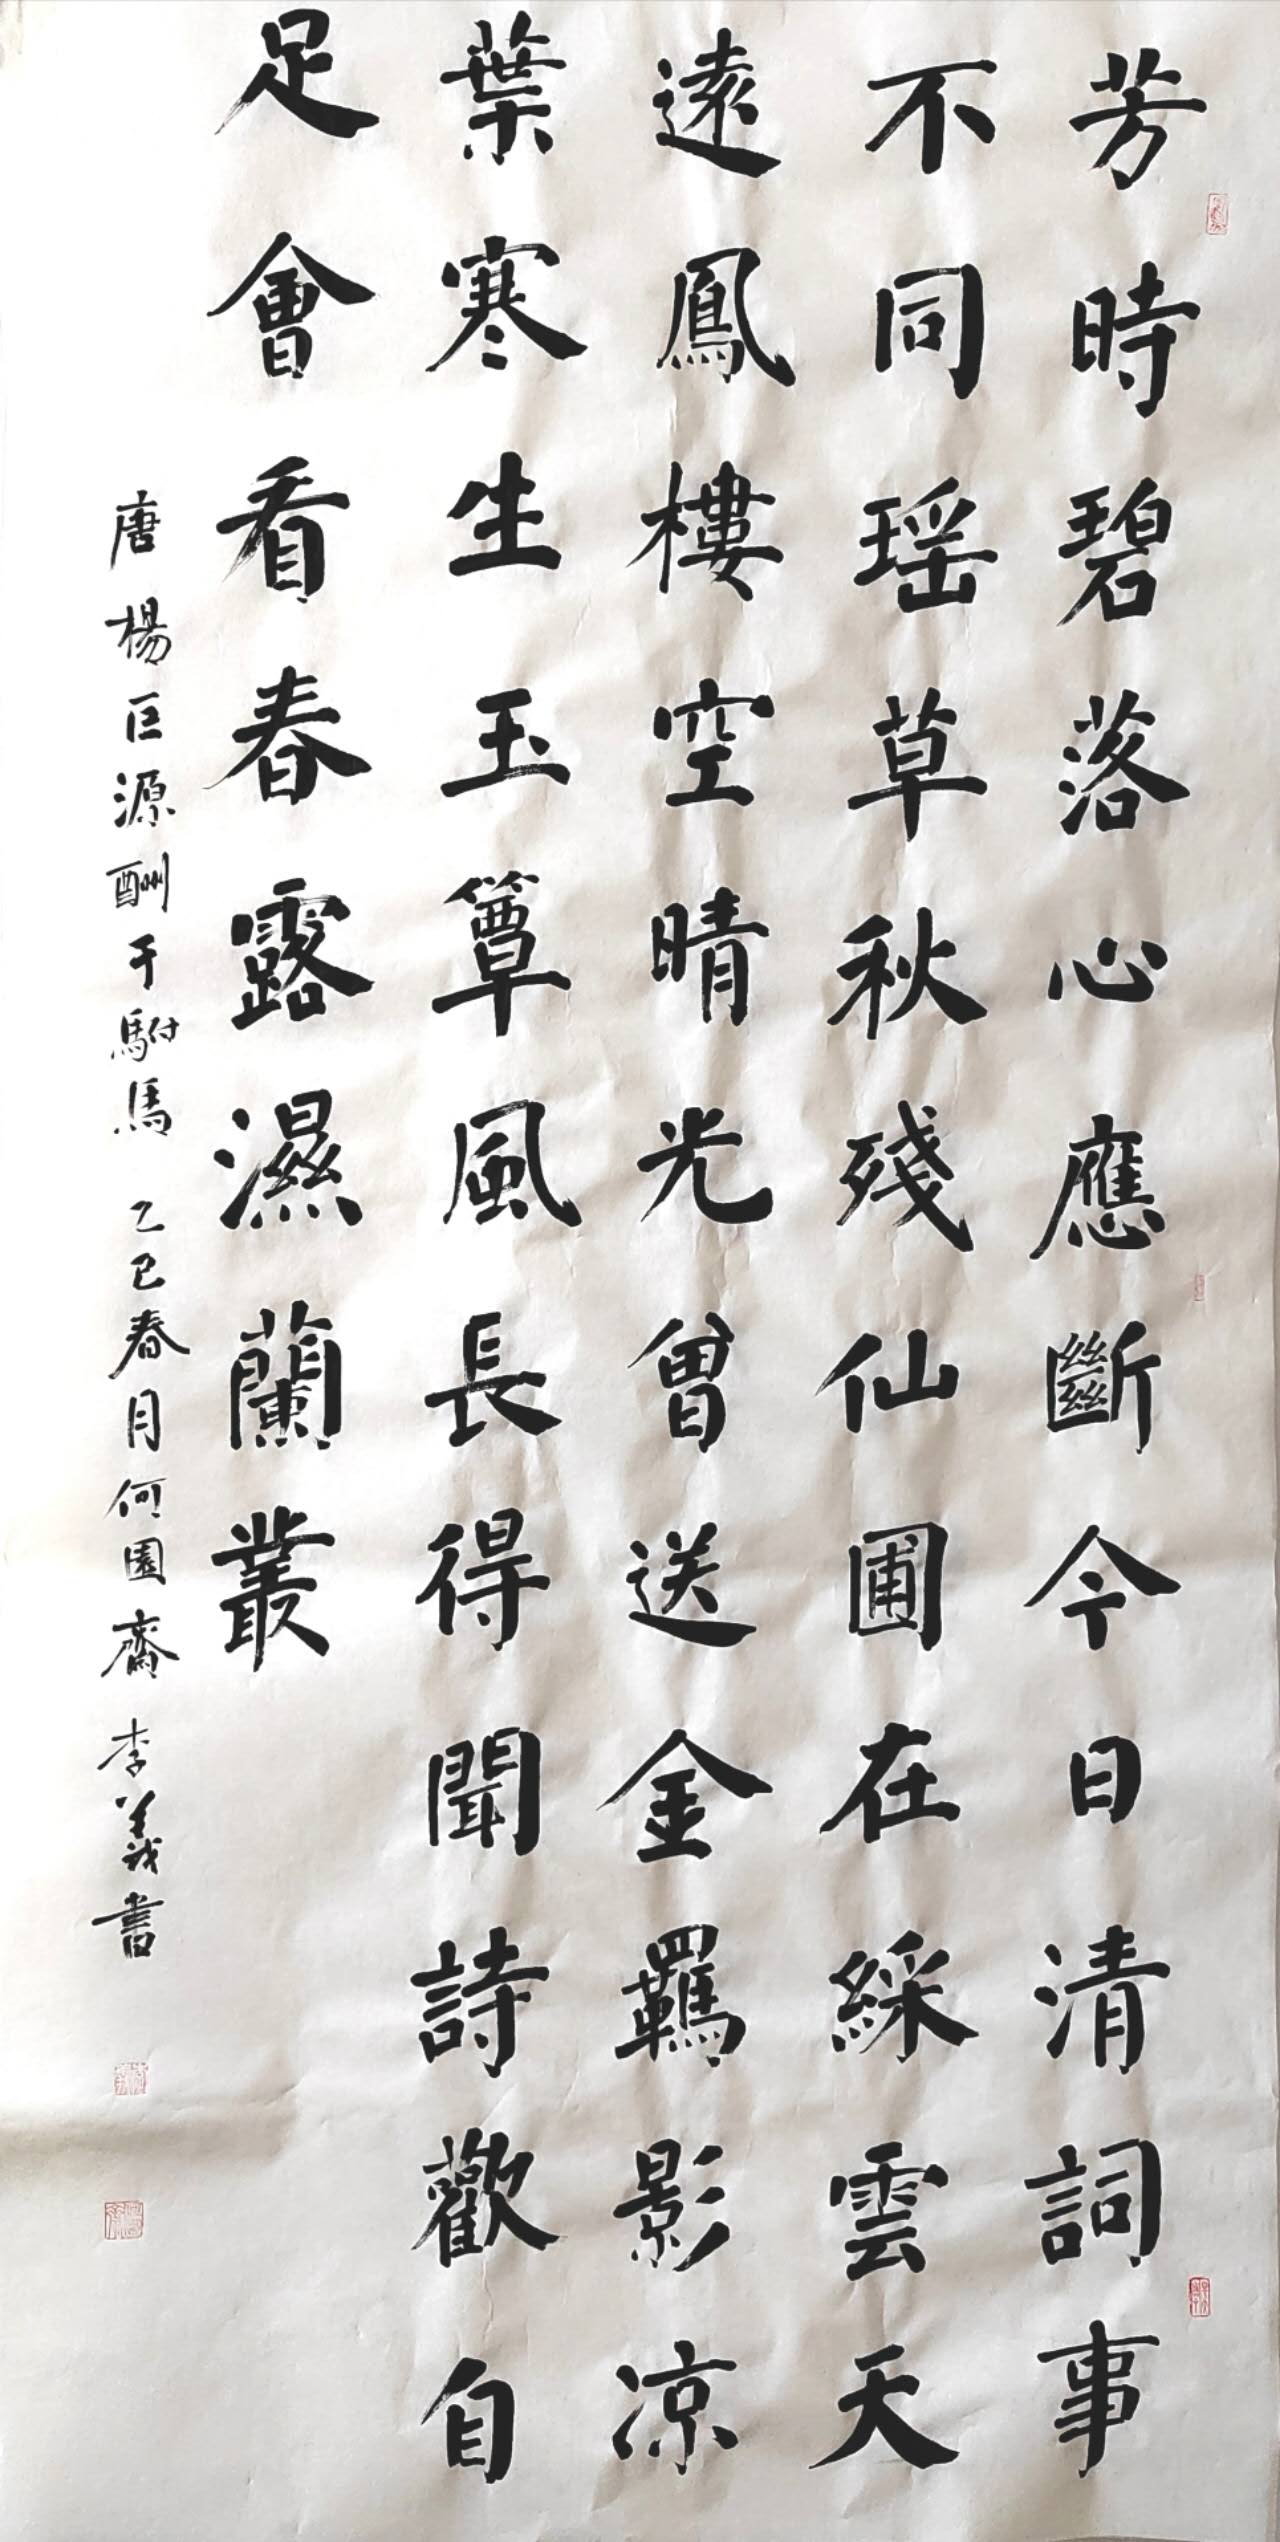 芳時碧落心應斷今日清詞事
不同瑶草秋殘仙圃在綵雲天
遠鳳樓空晴光曾送金羈影凉
葉寒生玉簟風長得聞詩歡自
足會看春露濕蘭叢
唐楊巨源酬于駙馬 乙巳春月何園齋 李義書